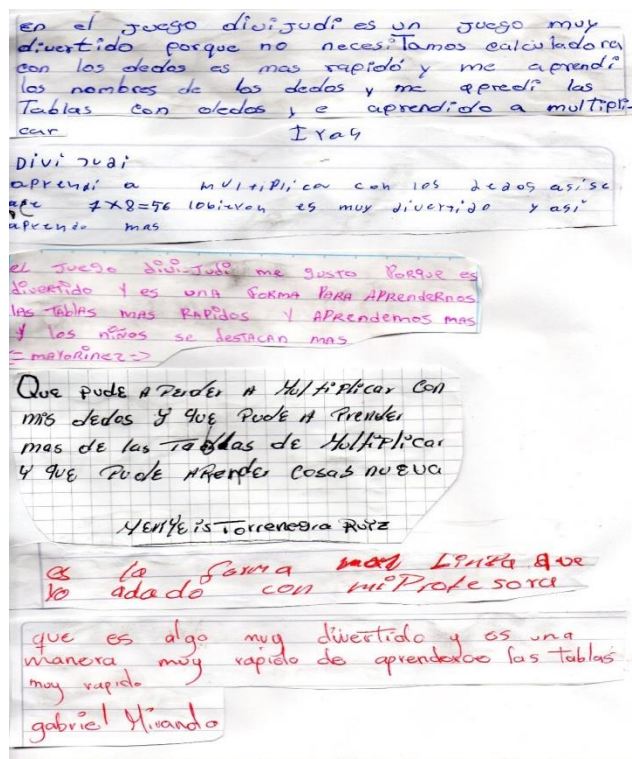 en el juego divi judi es un juego muy
divertido porque no necesitamos calculadora
con los dedos es mas rapidó y me aprendi
los nombres de los dedos y me apredi las
Tablas con dedos y e aprendido a multipli-
car
Divi
aprendi a multiplicar con los dedos asi se
7x8=56 es muy divertido y asi
aprendo mas
el juego divi-Judi me gusto PORque es
divertido y es una FORMA PARA APRendeRnos
las Tablas mas RAPidos y APRendemos mas
y los niños se desTACAN mas
Que pude A Perder A Multiplicar con
mis dedos y que Pude A Prender
mas de las Tablas de Multiplicar
y que Pude APerder cosas nueva
Torrenegra Ruiz
es la forma mas Linda que
yo adado con mi Profesora
que es algo muy divertido y es una
manera muy rapido de aprenderce las tablas
muy rapido
gabriel Miranda